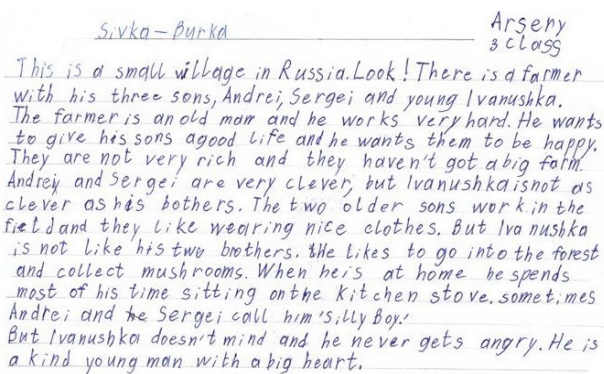 Sivka - Burka
Arseny
3 class
This is a small village in Russia. Look! There is a farmer
with his three sons, Andrei, Sergei and young Ivanushka.
The farmer is an old man and he works very hard. He wants
to give his sons a good life and he wants them to be happy.
They are not very rich and they haven't got a big farm.
Andrei and Sergei are very clever, but Ivanushka is not as
clever as his bothers. The two older sons work in the
field and they like wearing nice clothes. But Ivanushka
is not like his two brothers. He likes to go into the forest
and collect mushrooms. When he is at home he spends
most of his time sitting on the kitchen stove. sometimes
Andrei and Sergei call him 'silly Boy.'
But Ivanushka doesn't mind and he never gets angry. He is
a kind young man with a big heart.